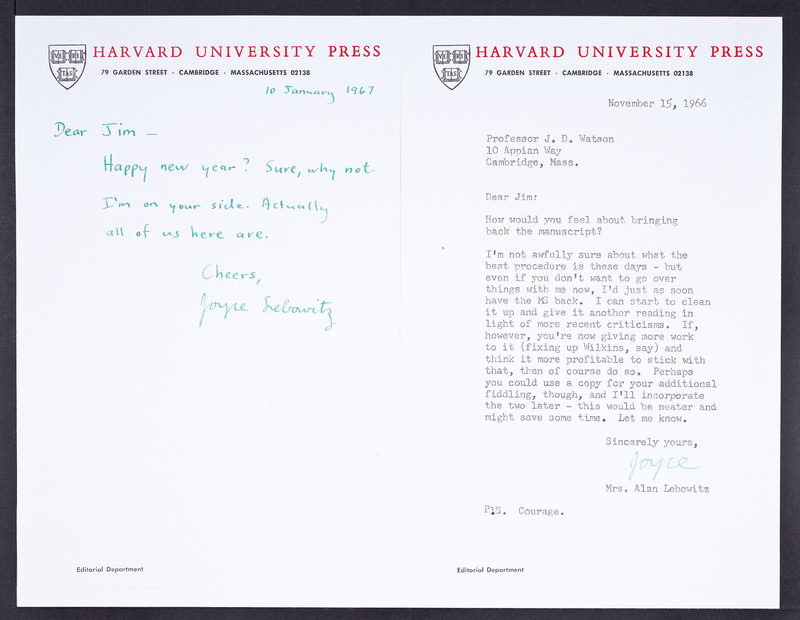 HARVARD UNIVERSITY PRESS
79 GARDEN STREET · CAMBRIDGE · MASSACHUSETTS 02138
10 January 1967
Dear Jim —
Happy new year? Sure, why not.
I'm on your side. Actually
all of us here are.
Cheers,
Joyce Lebowitz
Editorial Department
HARVARD UNIVERSITY PRESS
79 GARDEN STREET · CAMBRIDGE · MASSACHUSETTS 02138
November 15, 1966
Professor J. D. Watson
10 Appian Way
Cambridge, Mass.
Dear Jim:
How would you feel about bringing
back the manuscript?
I'm not awfully sure about what the
best procedure is these days - but
even if you don't want to go over
things with me now, I'd just as soon
have the MS back. I can start to clean
it up and give it another reading in
light of more recent criticisms. If,
however, you're now giving more work
to it (fixing up Wilkins, say) and
think it more profitable to stick with
that, then of course do so. Perhaps
you could use a copy for your additional
fiddling, though, and I'll incorporate
the two later - this would be neater and
might save some time. Let me know.
Sincerely yours,
Joyce
Mrs. Alan Lebowitz
P.S. Courage.
Editorial Department